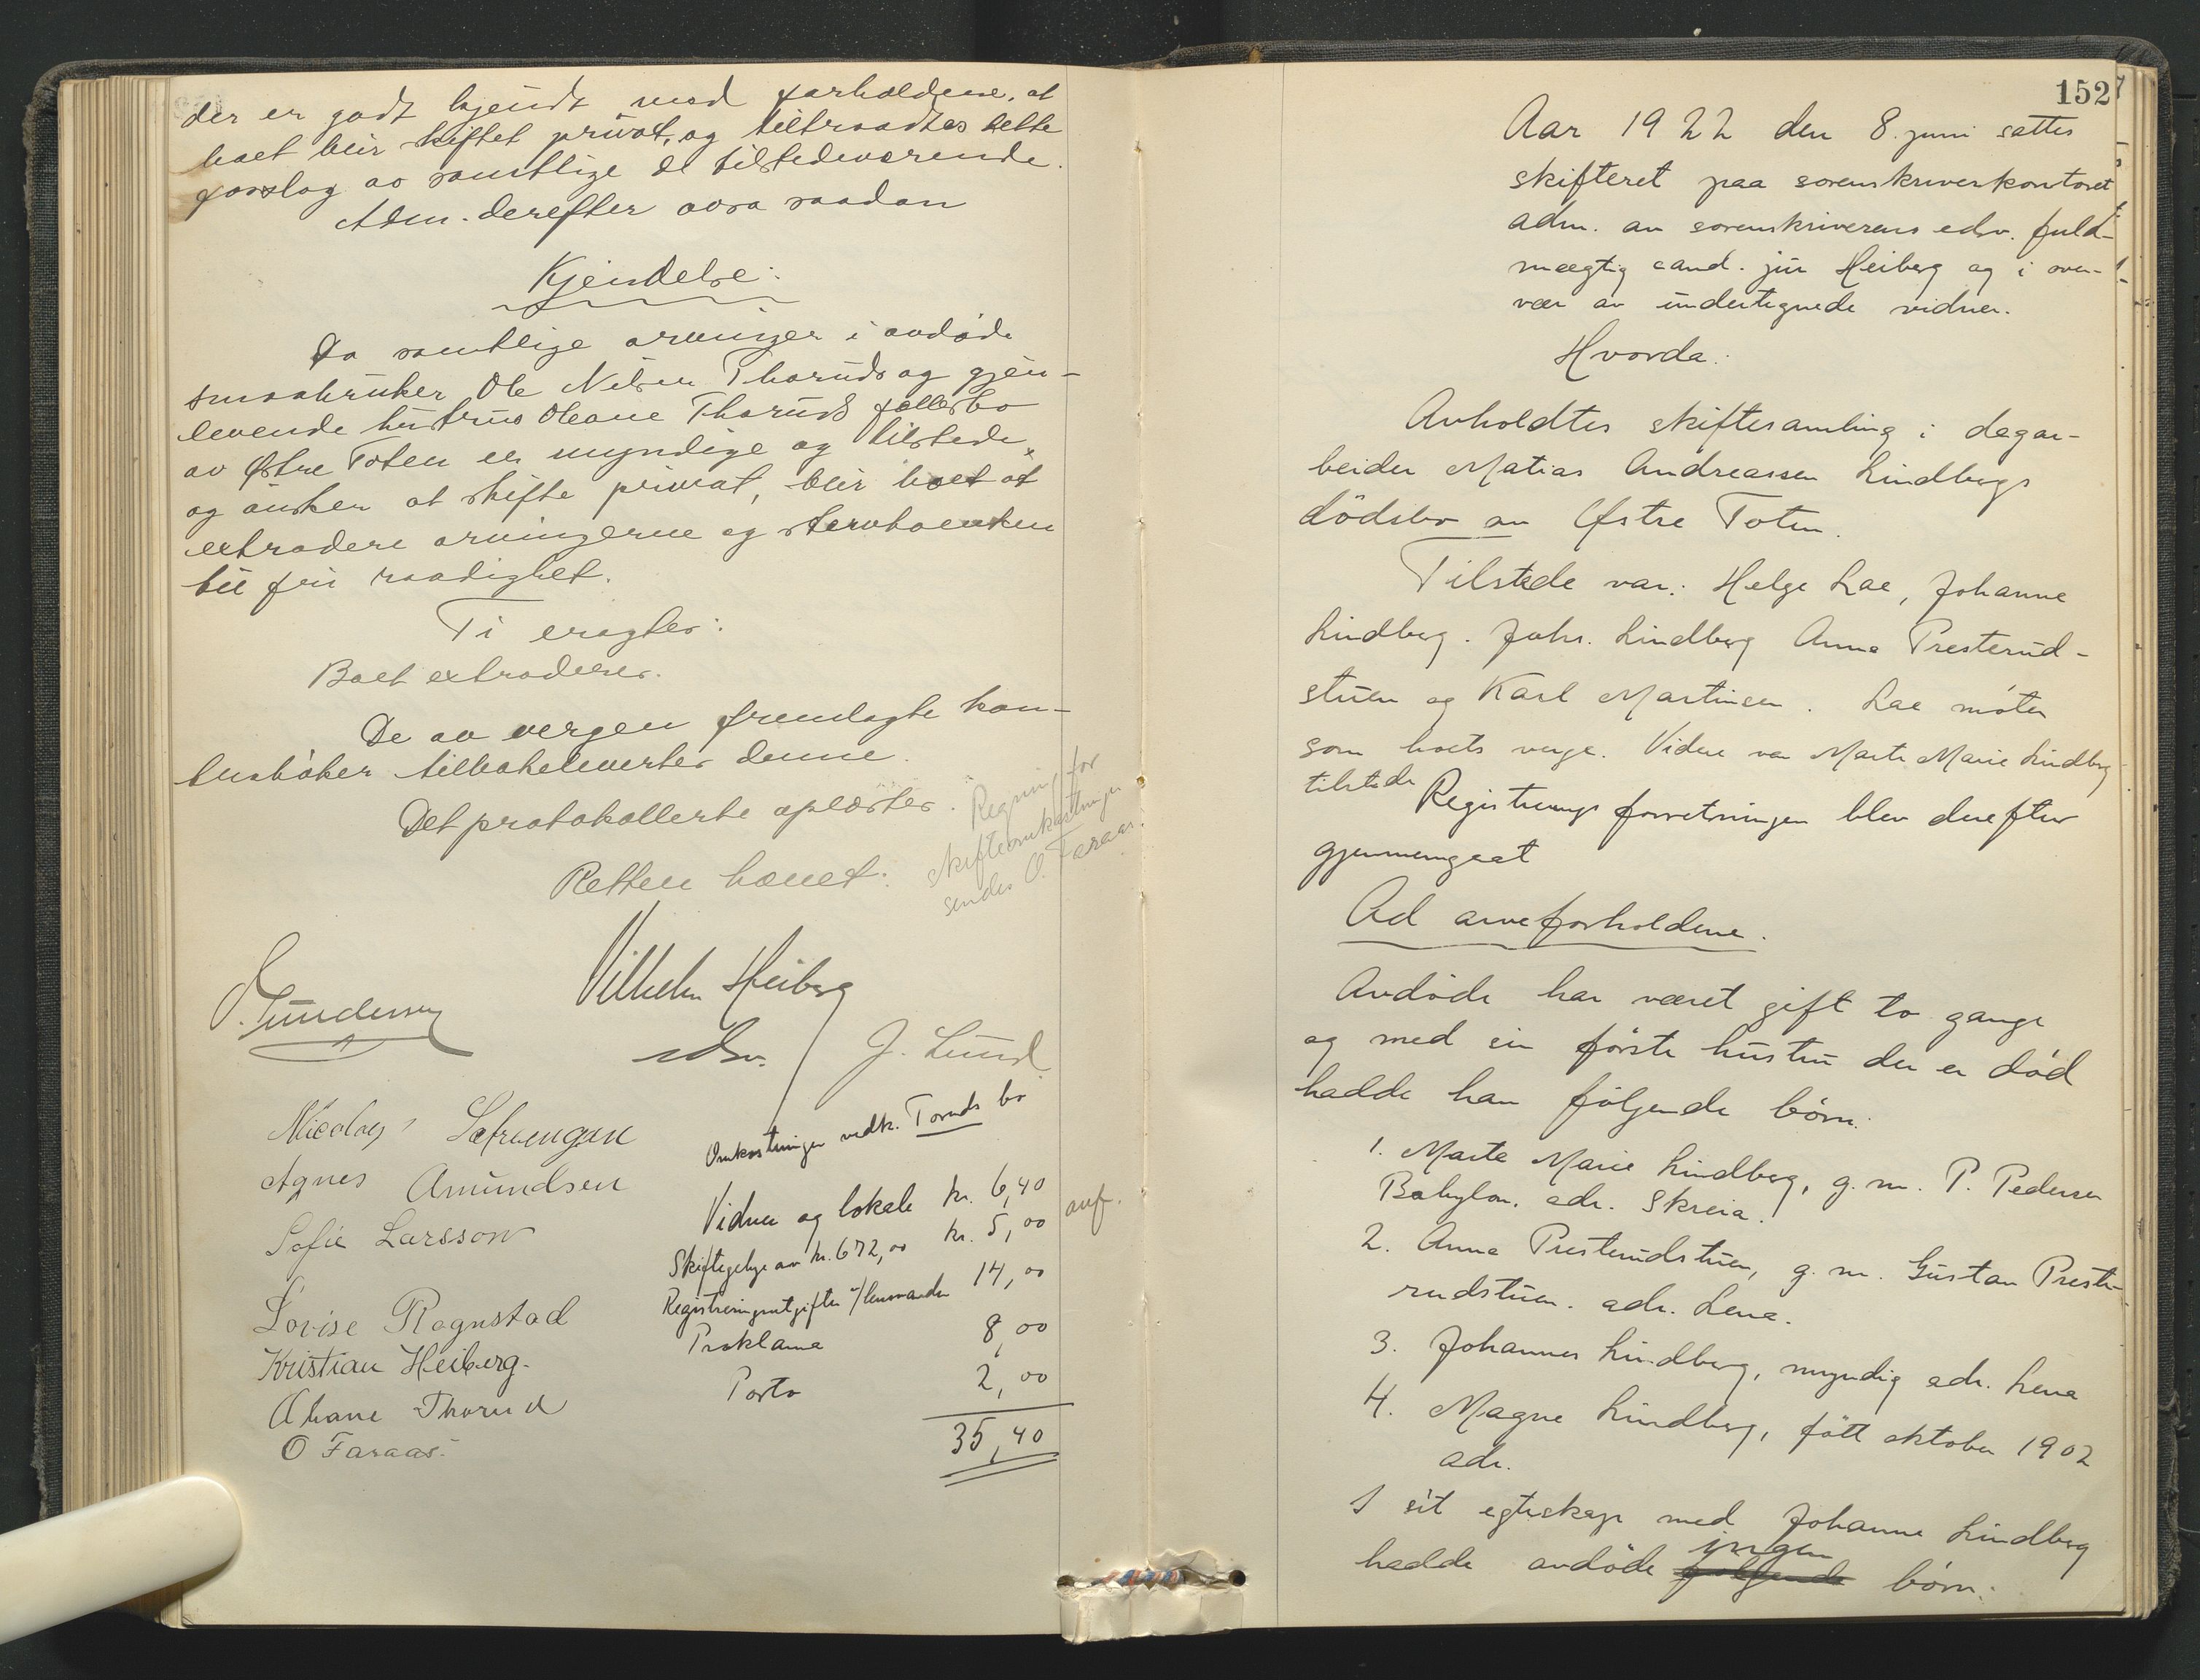 der er godt kjendt med forholdene, at
boet blir skiftet privat, og tiltraadtes dette
forslag av samtlige de tilstedeværende.
Adm. derefter avsa saadan
Kjendelse:
Da samtlige arvinger i avdøde
smaabruker Ole Nilsen Thoruds og gjen-
levende hustrus Oleane Thoruds fællesbo
av Østre Toten er myndige og tilstede,
og ønsker at skifte privat, blir boet at
extradere arvingerne og stervboenken
til fri raadighet.
Ti eragtes:
Boet extraderes.
De av vergen fremlagte kon-
tusbøker tilbakeleverter denne.
Det protokollerte oplæstes.
Regning for
skifteomkostninger
sendes O. Faraas.
Retten hævet:
Vilhelm Heiberg
edsv.
O. Gundersen
J. Lund
Nicolay Sofraengan
Agnes Amundsen
Sofie Larsson
Lovise Rognstad
Kristian Heiberg.
Oliane Thorud
O Faraas.
Omkostninger vedk. Toruds bo
Vidner og lokale kr. 6,40
Skiftegebyr av kr. 672,00 kr. 5,00 anf.
Registreringsutgifter t/lensmanden 14,00
Proklama 8,00
Porto 2,00
35,40
152
Aar 1922 den 8. juni sattes
skifteret paa sorenskriverkontoret
adm. av sorenskriverens edsv. fuld-
mægtig cand. jur Heiberg og i over-
vær av undertegnede vidner.
Hvorda:
Avholdtes skiftesamling i dagar-
beider Matias Andreassen Lindbergs
dödsbo av Østre Toten.
Tilstede var: Helge Lae, Johanne
Lindberg. Johs. Lindberg Anna Presterud-
stuen og Karl Martinsen. Lae møter
som boets verge. Videre var Marte Marie Lindberg
tilstede Registrerings forretningen blev derefter
gjennemgaat
Ad arveforholdene.
Avdøde har været gift to gange
og med sin første hustru der er død
hadde han følgende børn:
1. Marte Marie Lindberg, g. m. P. Pedersen
Babylon. adr. Skreia.
2. Anna Presterudstuen, g. m. Gustav Preste-
rudstuen. adr. Lena.
3. Johannes Lindberg, myndig adr. Lena
4. Magne Lindberg, født oktober 1902
adr.
I sit egteskap med Johanne Lindberg
hadde avdøde følgende ingen børn.